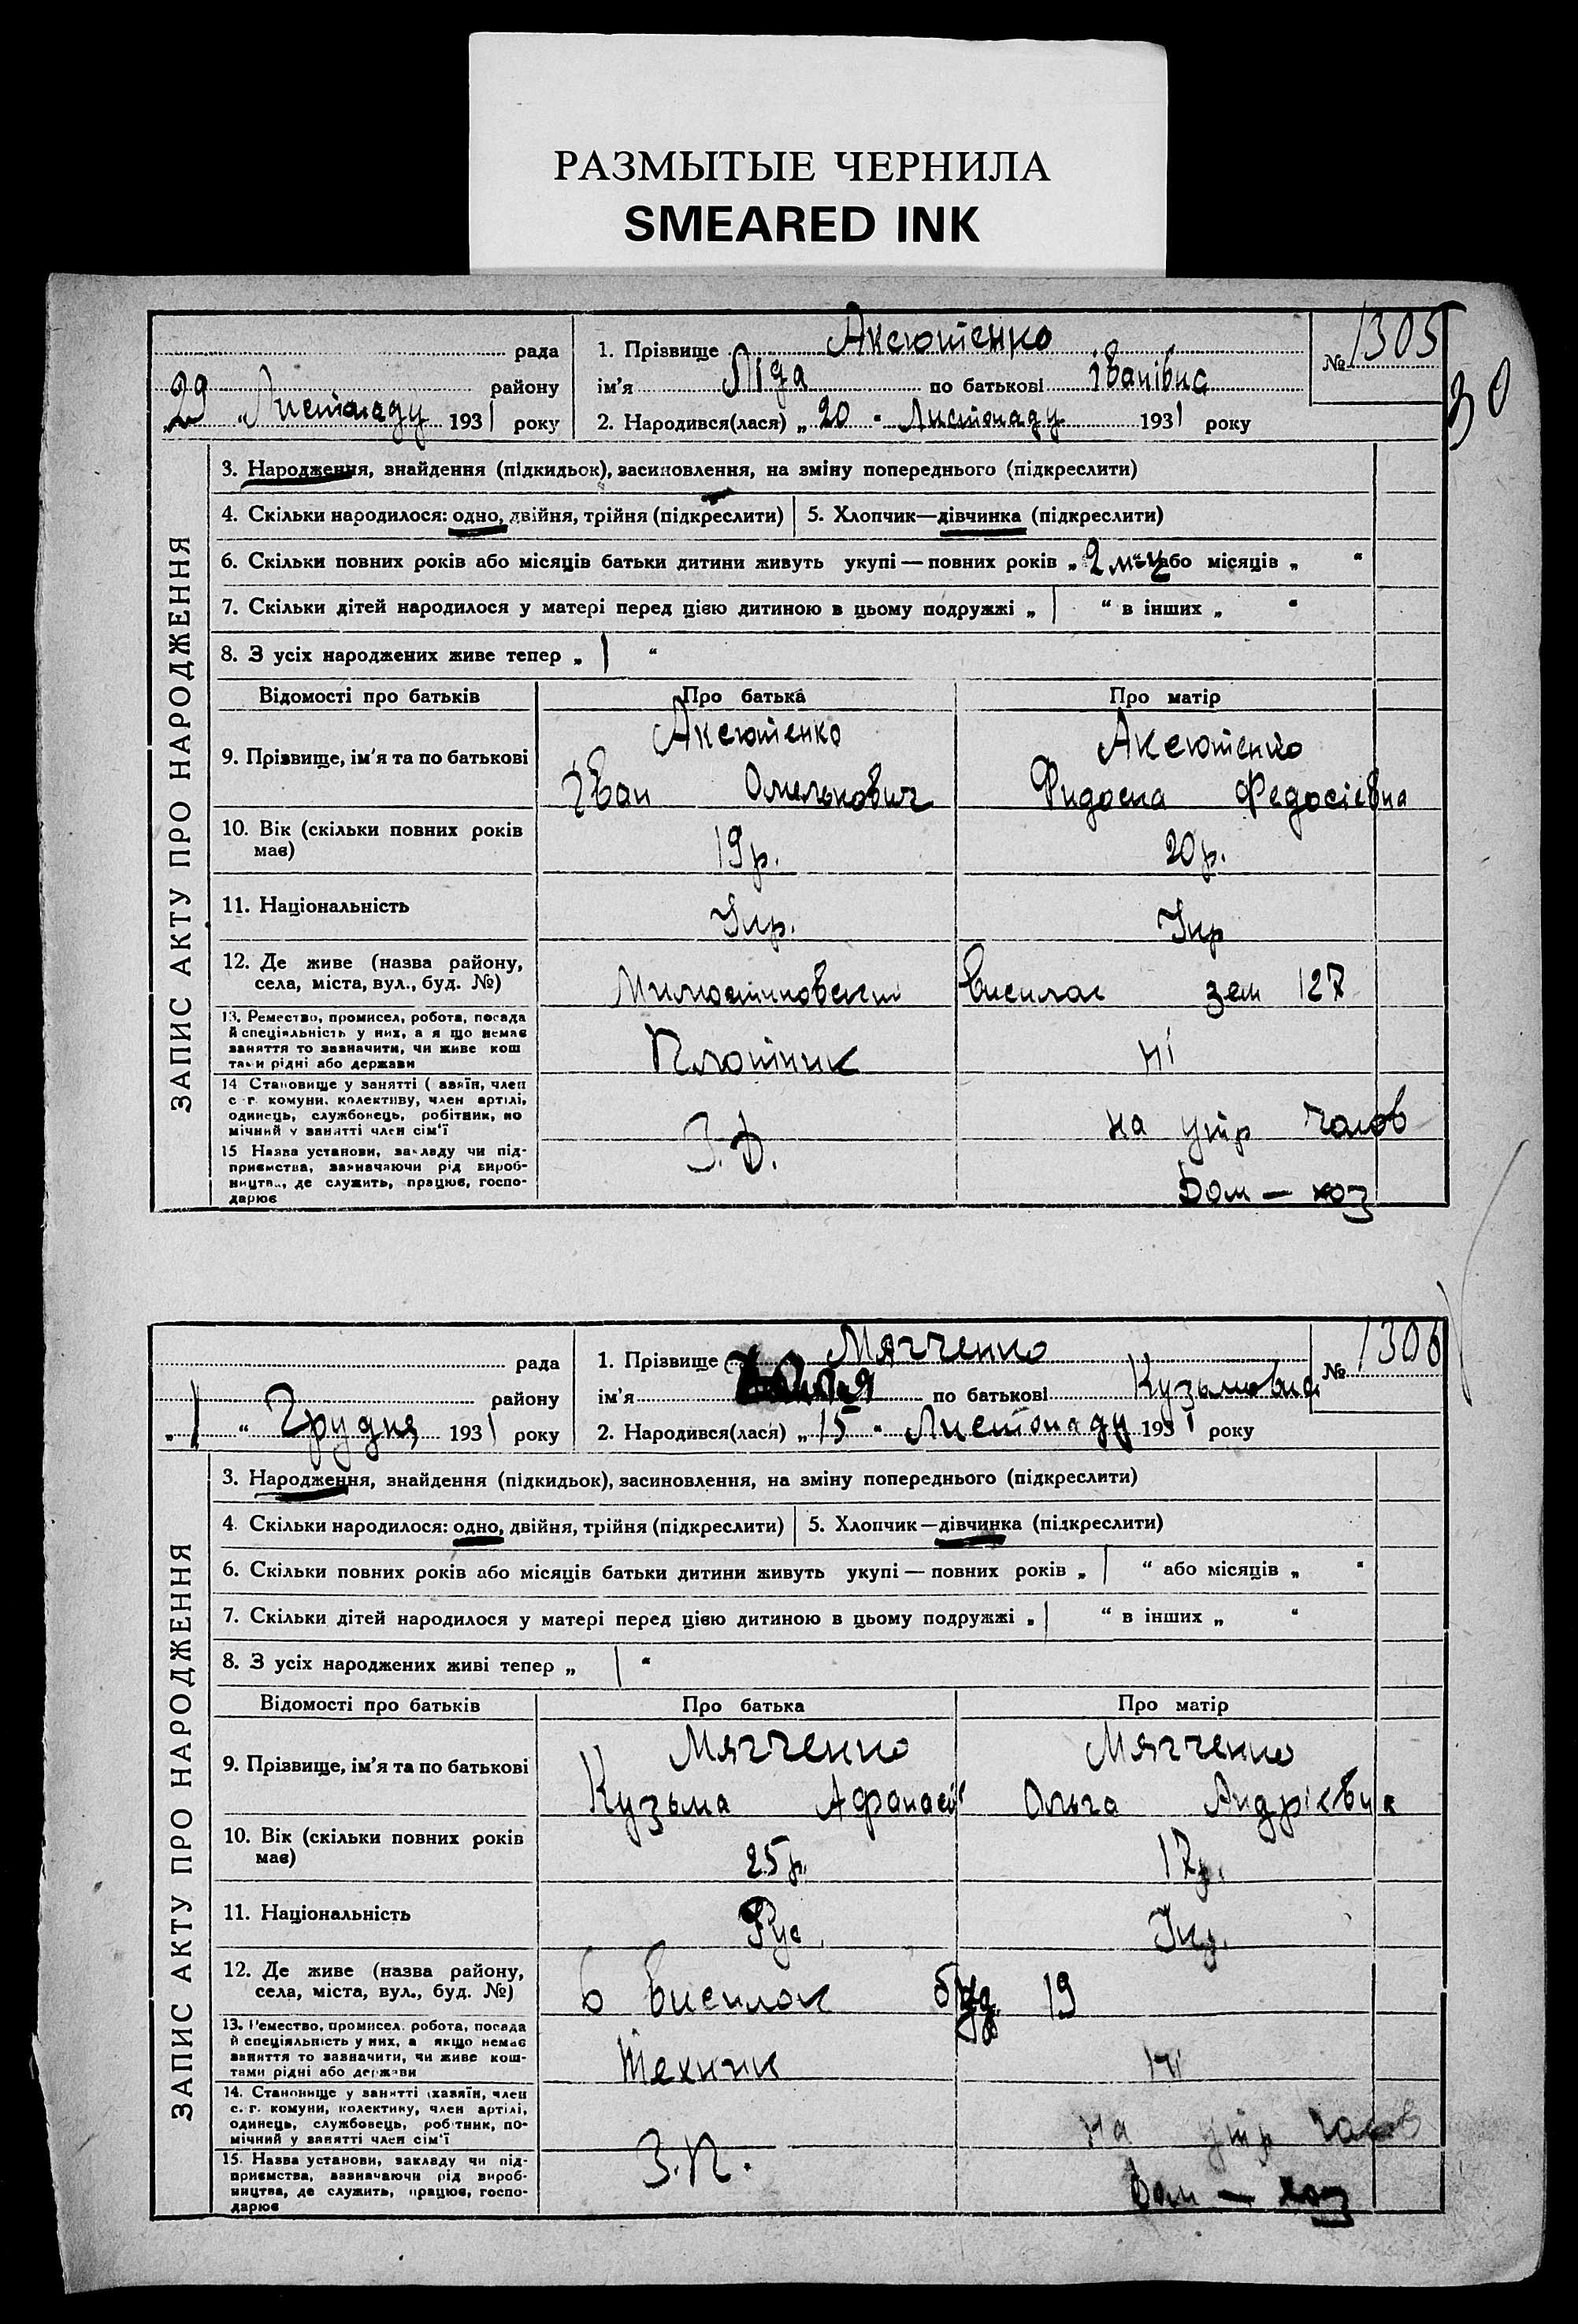 РАЗМЫТЫЕ ЧЕРНИЛА
SMEARED INK
ЗАПИС АКТУ ПРО НАРОДЖЕННЯ
рада
району
29 Листопаду 1931 року
1. Прізвище Аксютенко
ім'я Ліда по батькові Іванівна
2. Народився(лася) „ 20 " Листопаду 1931 року
№ 1305
30
3. Народження, знайдення (підкидьок), засиновлення, на зміну попереднього (підкреслити)
4. Скільки народилося: одно, двійня, трійня (підкреслити) 5. Хлопчик—дівчинка (підкреслити)
6. Скільки повних років або місяців батьки дитини живуть укупі — повних років „ 2 або місяців „ "
7. Скільки дітей народилося у матері перед цією дитиною в цьому подружжі „ 1 " в інших „ "
8. З усіх народжених живе тепер „ 1 "
Відомості про батьків Про батька Про матір
9. Прізвище, ім'я та по батькові
Аксютенко Аксютенко
Іван Омелькович Федосіевна
10. Вік (скільки повних років має)
19р. 20р.
11. Національність Укр. Укр
12. Де живе (назва району, села, міста, вул., буд. №)
зем 127
13. Ремество, промисел, робота, посада й спеціяльність у них, а я що немає заняття то зазначити, чи живе кош тами рідні або держави
Плотник ні
14 Становище у занятті ( азяїн, член с -г. комуни, колективу, член артілі, одинець, службовець, робітник, по мічний у занятті член сім'ї
на утр
15 Назва установи, закладу чи підприємства, зазначаючи рід виробництва, де служить, працює, господарює
З.Д. Дом — хоз
ЗАПИС АКТУ ПРО НАРОДЖЕННЯ
рада
району
„ 1 " Грудня 1931 року
1. Прізвище Мягченко
ім'я по батькові Кузьмовна
2. Народився(лася) „ 15 " Листопаду 1931 року
№ 1306
3. Народження, знайдення (підкидьок), засиновлення, на зміну попереднього (підкреслити)
4. Скільки народилося: одно, двійня, трійня (підкреслити) 5. Хлопчик—дівчинка (підкреслити)
6. Скільки повних років або місяців батьки дитини живуть укупі — повних років „ 1 " або місяців „ "
7. Скільки дітей народилося у матері перед цією дитиною в цьому подружжі „ 1 " в інших „ "
8. З усіх народжених живі тепер „ 1 "
Відомості про батьків Про батька Про матір
9. Прізвище, ім'я та по батькові
Мягченко Мягченко
Кузьма Ольга Андрієвна
10. Вік (скільки повних років має)
25р. 17р.
11. Національність Рус. Укр.
12. Де живе (назва району, села, міста, вул., буд. №)
б висилок буд 19
13. Ремество, промисел, робота, посада й спеціяльність у них, а якщо немає заняття то зазначити, чи живе коштами рідні або держави
Технік ні
14. Становище у занятті (хазяїн, член с. г. комуни, колективу, член артілі, одинець, службовець, робітник, помічний у занятті член сім'ї
на утр
15. Назва установи, закладу чи підприємства, зазначаючи рід виробництва, де служить, працює, господарює
З.П. Дом — хоз